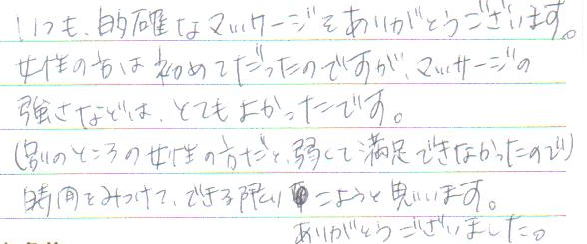 いつも、的確なマッサージをありがとうございます。
女性の方は初めてだったのですが、マッサージの
強さなどは、とてもよかったです。
(別のところの女性の方だと、弱くて満足できなかったので)
時間をみつけて、できる限り こようと思います。
ありがとうございました。